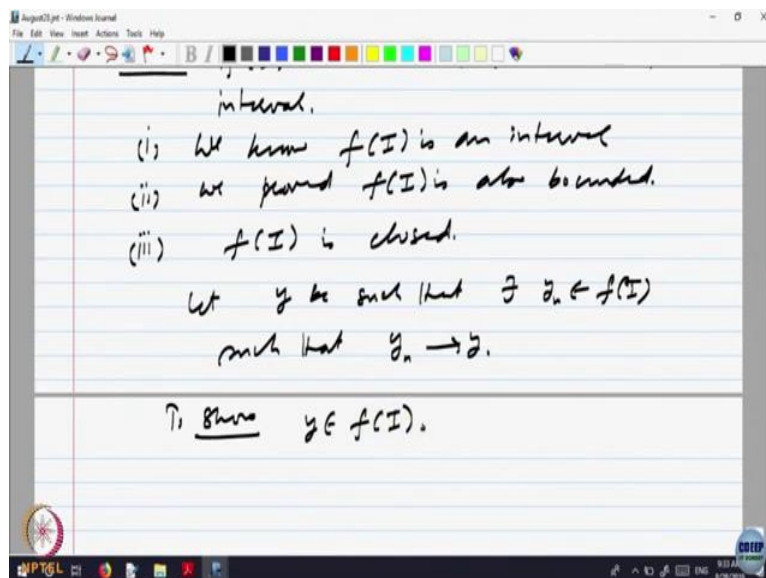 August28.jnt - Windows Journal
File Edit View Insert Actions Tools Help
interval.
(i) We know f(I) is an interval
(ii) we proved f(I) is also bounded.
(iii) f(I) is closed.
Let y be such that ∃ yₙ ∈ f(I)
such that yₙ → y.
To Show y ∈ f(I).
NPTEL
CDEEP
ENG